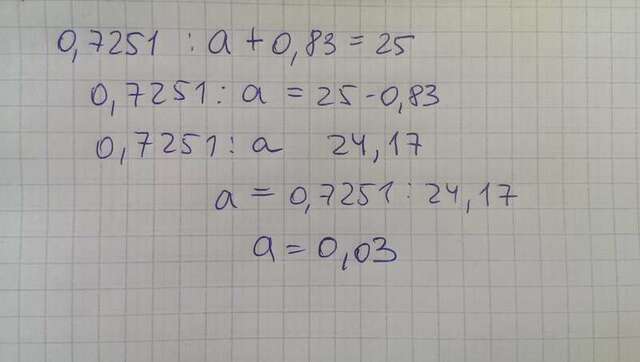 0,7251 : a + 0,83 = 25
0,7251 : a = 25 - 0,83
0,7251 : a 24,17
a = 0,7251 : 24,17
a = 0,03